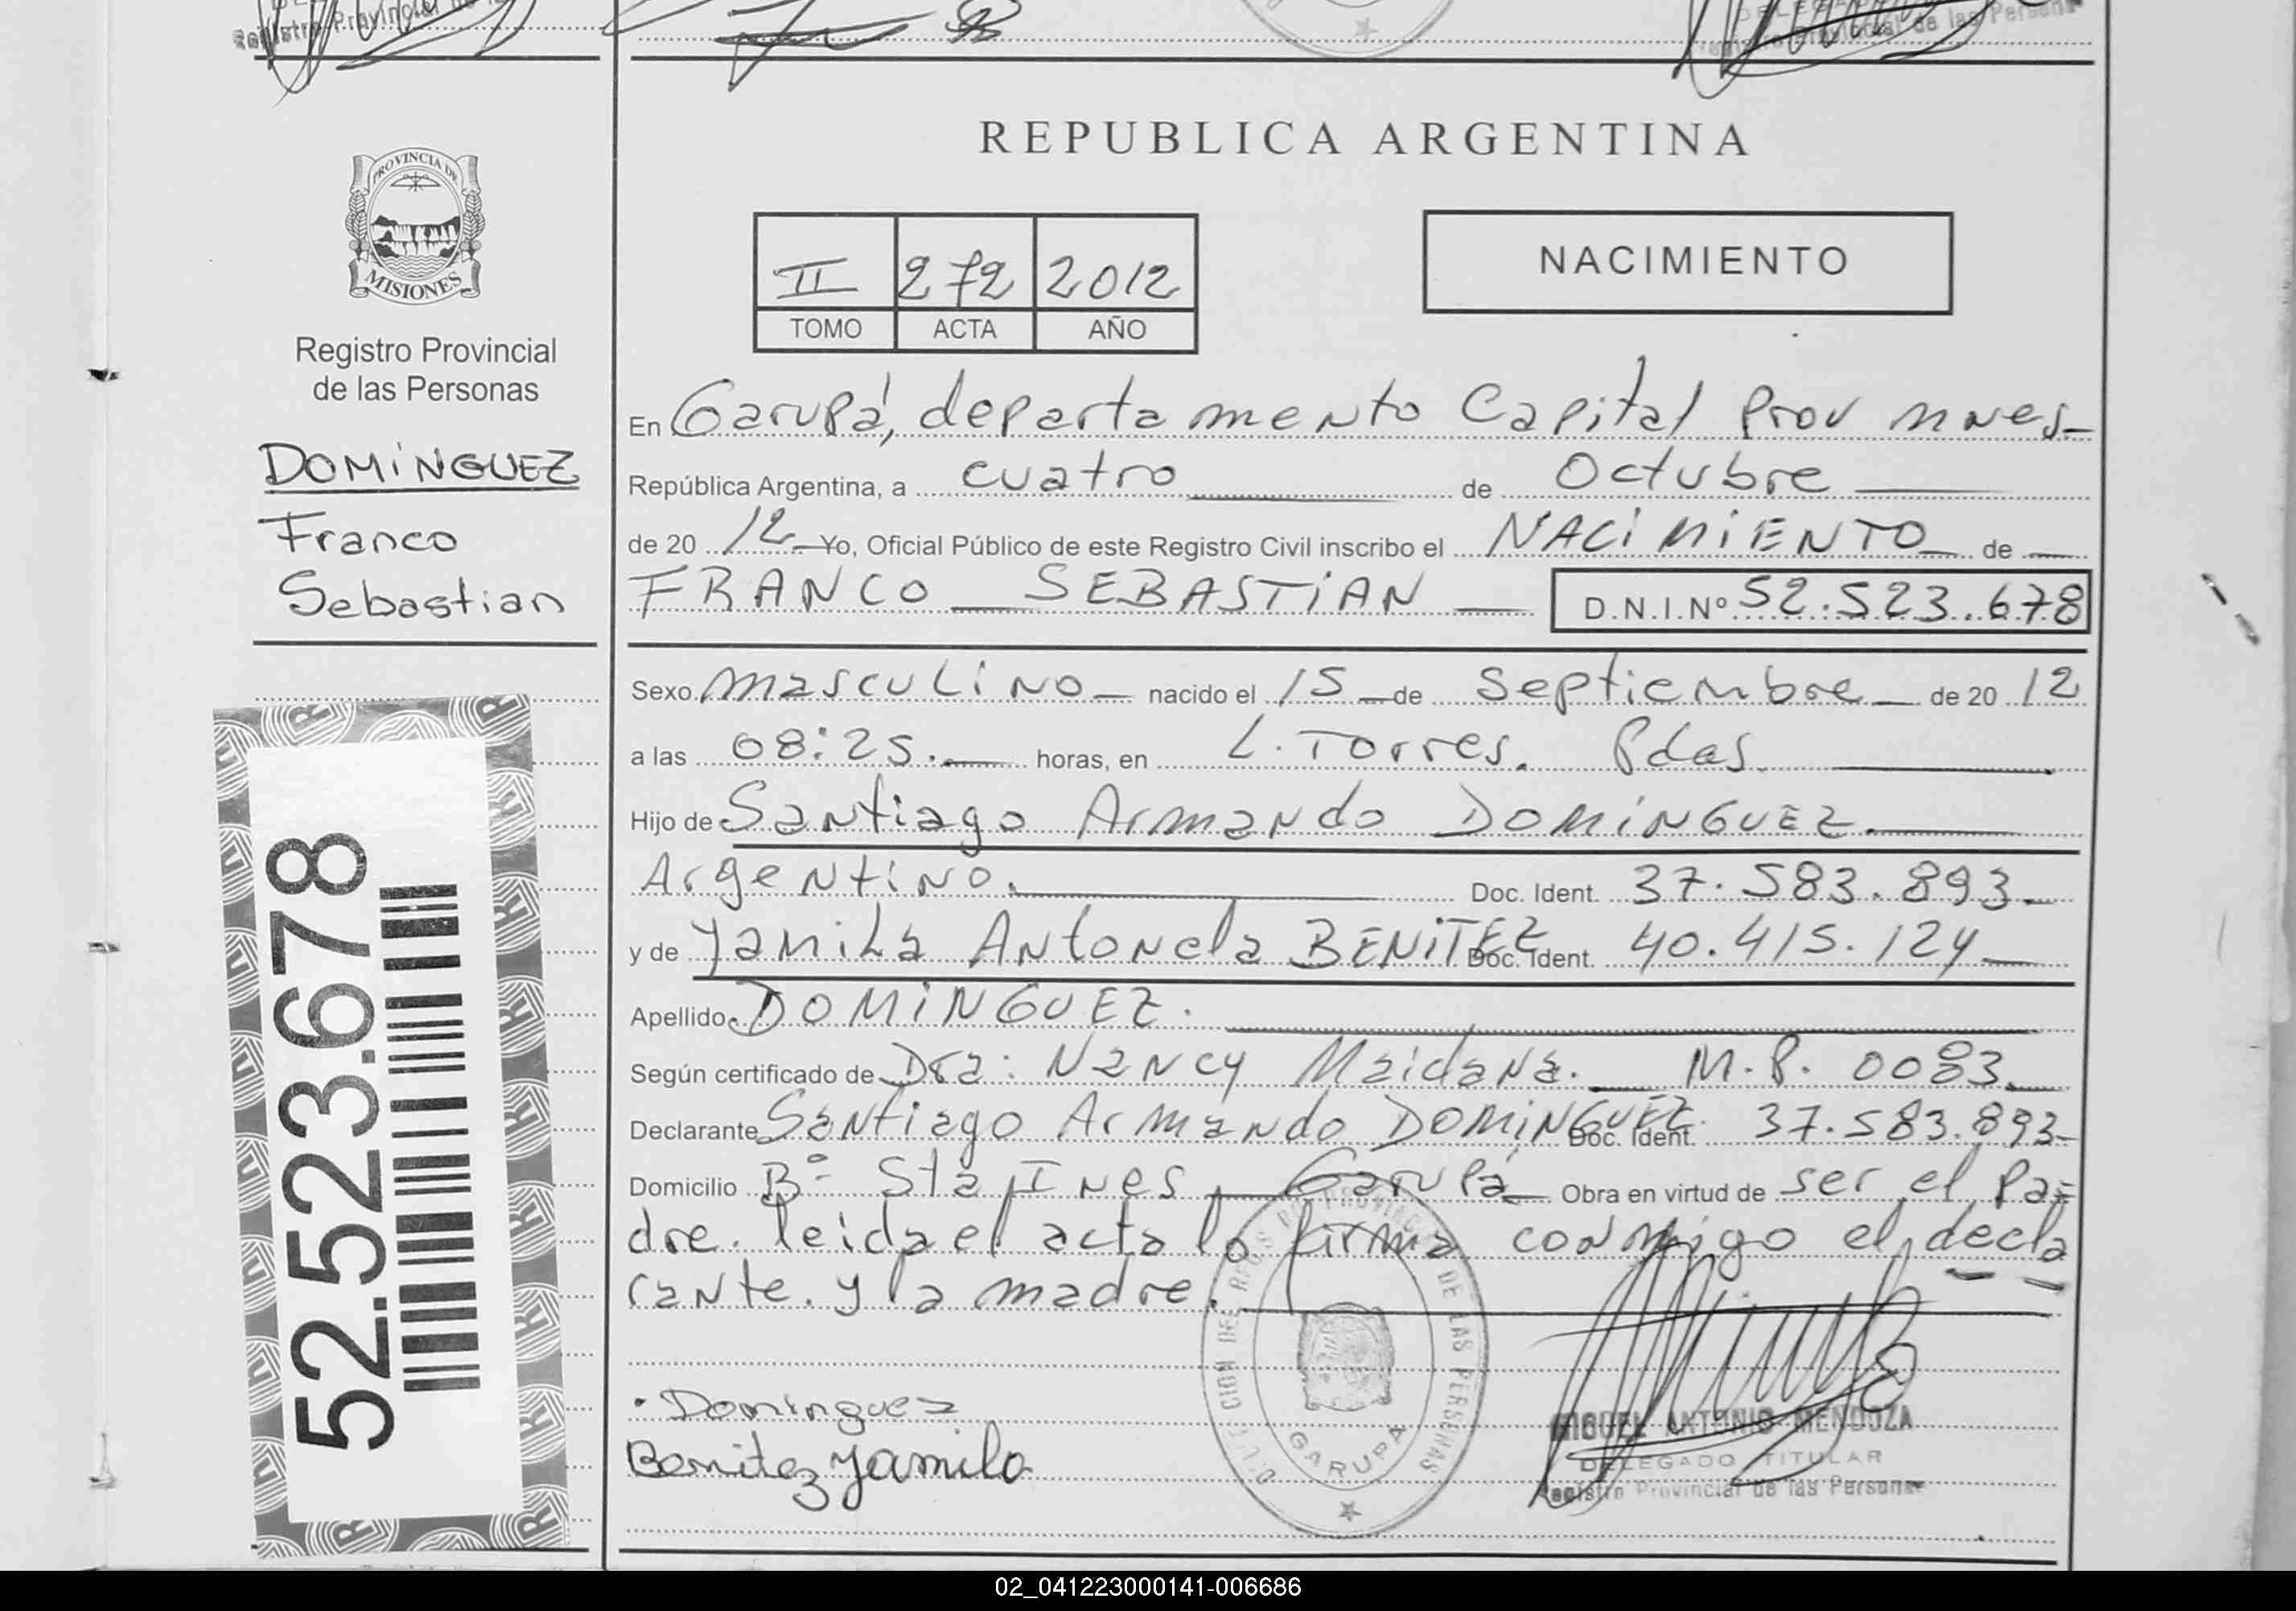 Registro Provincial de las
Registro Provincial de las Personas
REPUBLICA ARGENTINA
PROVINCIA DE
MISIONES
Registro Provincial
de las Personas
DOMINGUEZ
Franco
Sebastian
52.523.678
II 272 2012
TOMO ACTA AÑO
NACIMIENTO
En Garupá, departamento Capital Prov mnes
República Argentina, a cuatro de Octubre
de 20 12 Yo, Oficial Público de este Registro Civil inscribo el NACIMIENTO de
FRANCO SEBASTIAN D.N.I.Nº 52.523.678
Sexo masculino nacido el 15 de septiembre de 20 12
a las 08:25. horas, en L. Torres. Pdas.
Hijo de Santiago Armando DOMINGUEZ.
Argentino. Doc. Ident. 37.583.893.
y de Yamila Antonela BENITEZ Doc. Ident. 40.415.124
Apellido DOMINGUEZ.
Según certificado de Dra: Nancy Maidana. M.P. 0083.
Declarante Santiago Armando DOMINGUEZ Doc. Ident. 37.583.893
Domicilio Bº Sta Ines, Garupá Obra en virtud de ser el pa=
dre. leida el acta lo firma conmigo el decla
rante. y la madre.
Dominguez
Benitez Yamila
PROVINCIAL DE LAS PERSONAS
GARUPA
MIGUEL ANTONIO MENDOZA
DELEGADO TITULAR
Registro Provincial de las Personas
02_041223000141-006686